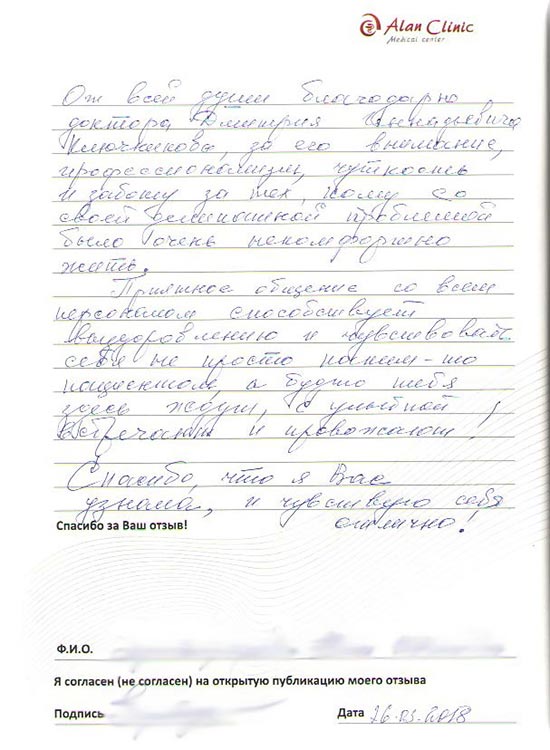 Alan Clinic
Medical center
От всей души благодарна
доктора Дмитрия Геннадьевича
Ключникова, за его внимание,
профессионализм, чуткость
и заботу за тех, кому со
своей проблемой
было очень некомфортно
жить.
Приятное общение со всем
персоналом способствует
выздоровлению и чувствовать
себя не просто каким-то
пациентом, а будто тебя
здесь ждут, с улыбкой
встречают и провожают!
Спасибо, что я Вас
узнала, и чувствую себя
отлично!
Спасибо за Ваш отзыв!
Ф.И.О.
Я согласен (не согласен) на открытую публикацию моего отзыва
Подпись
Дата 26.03.2018